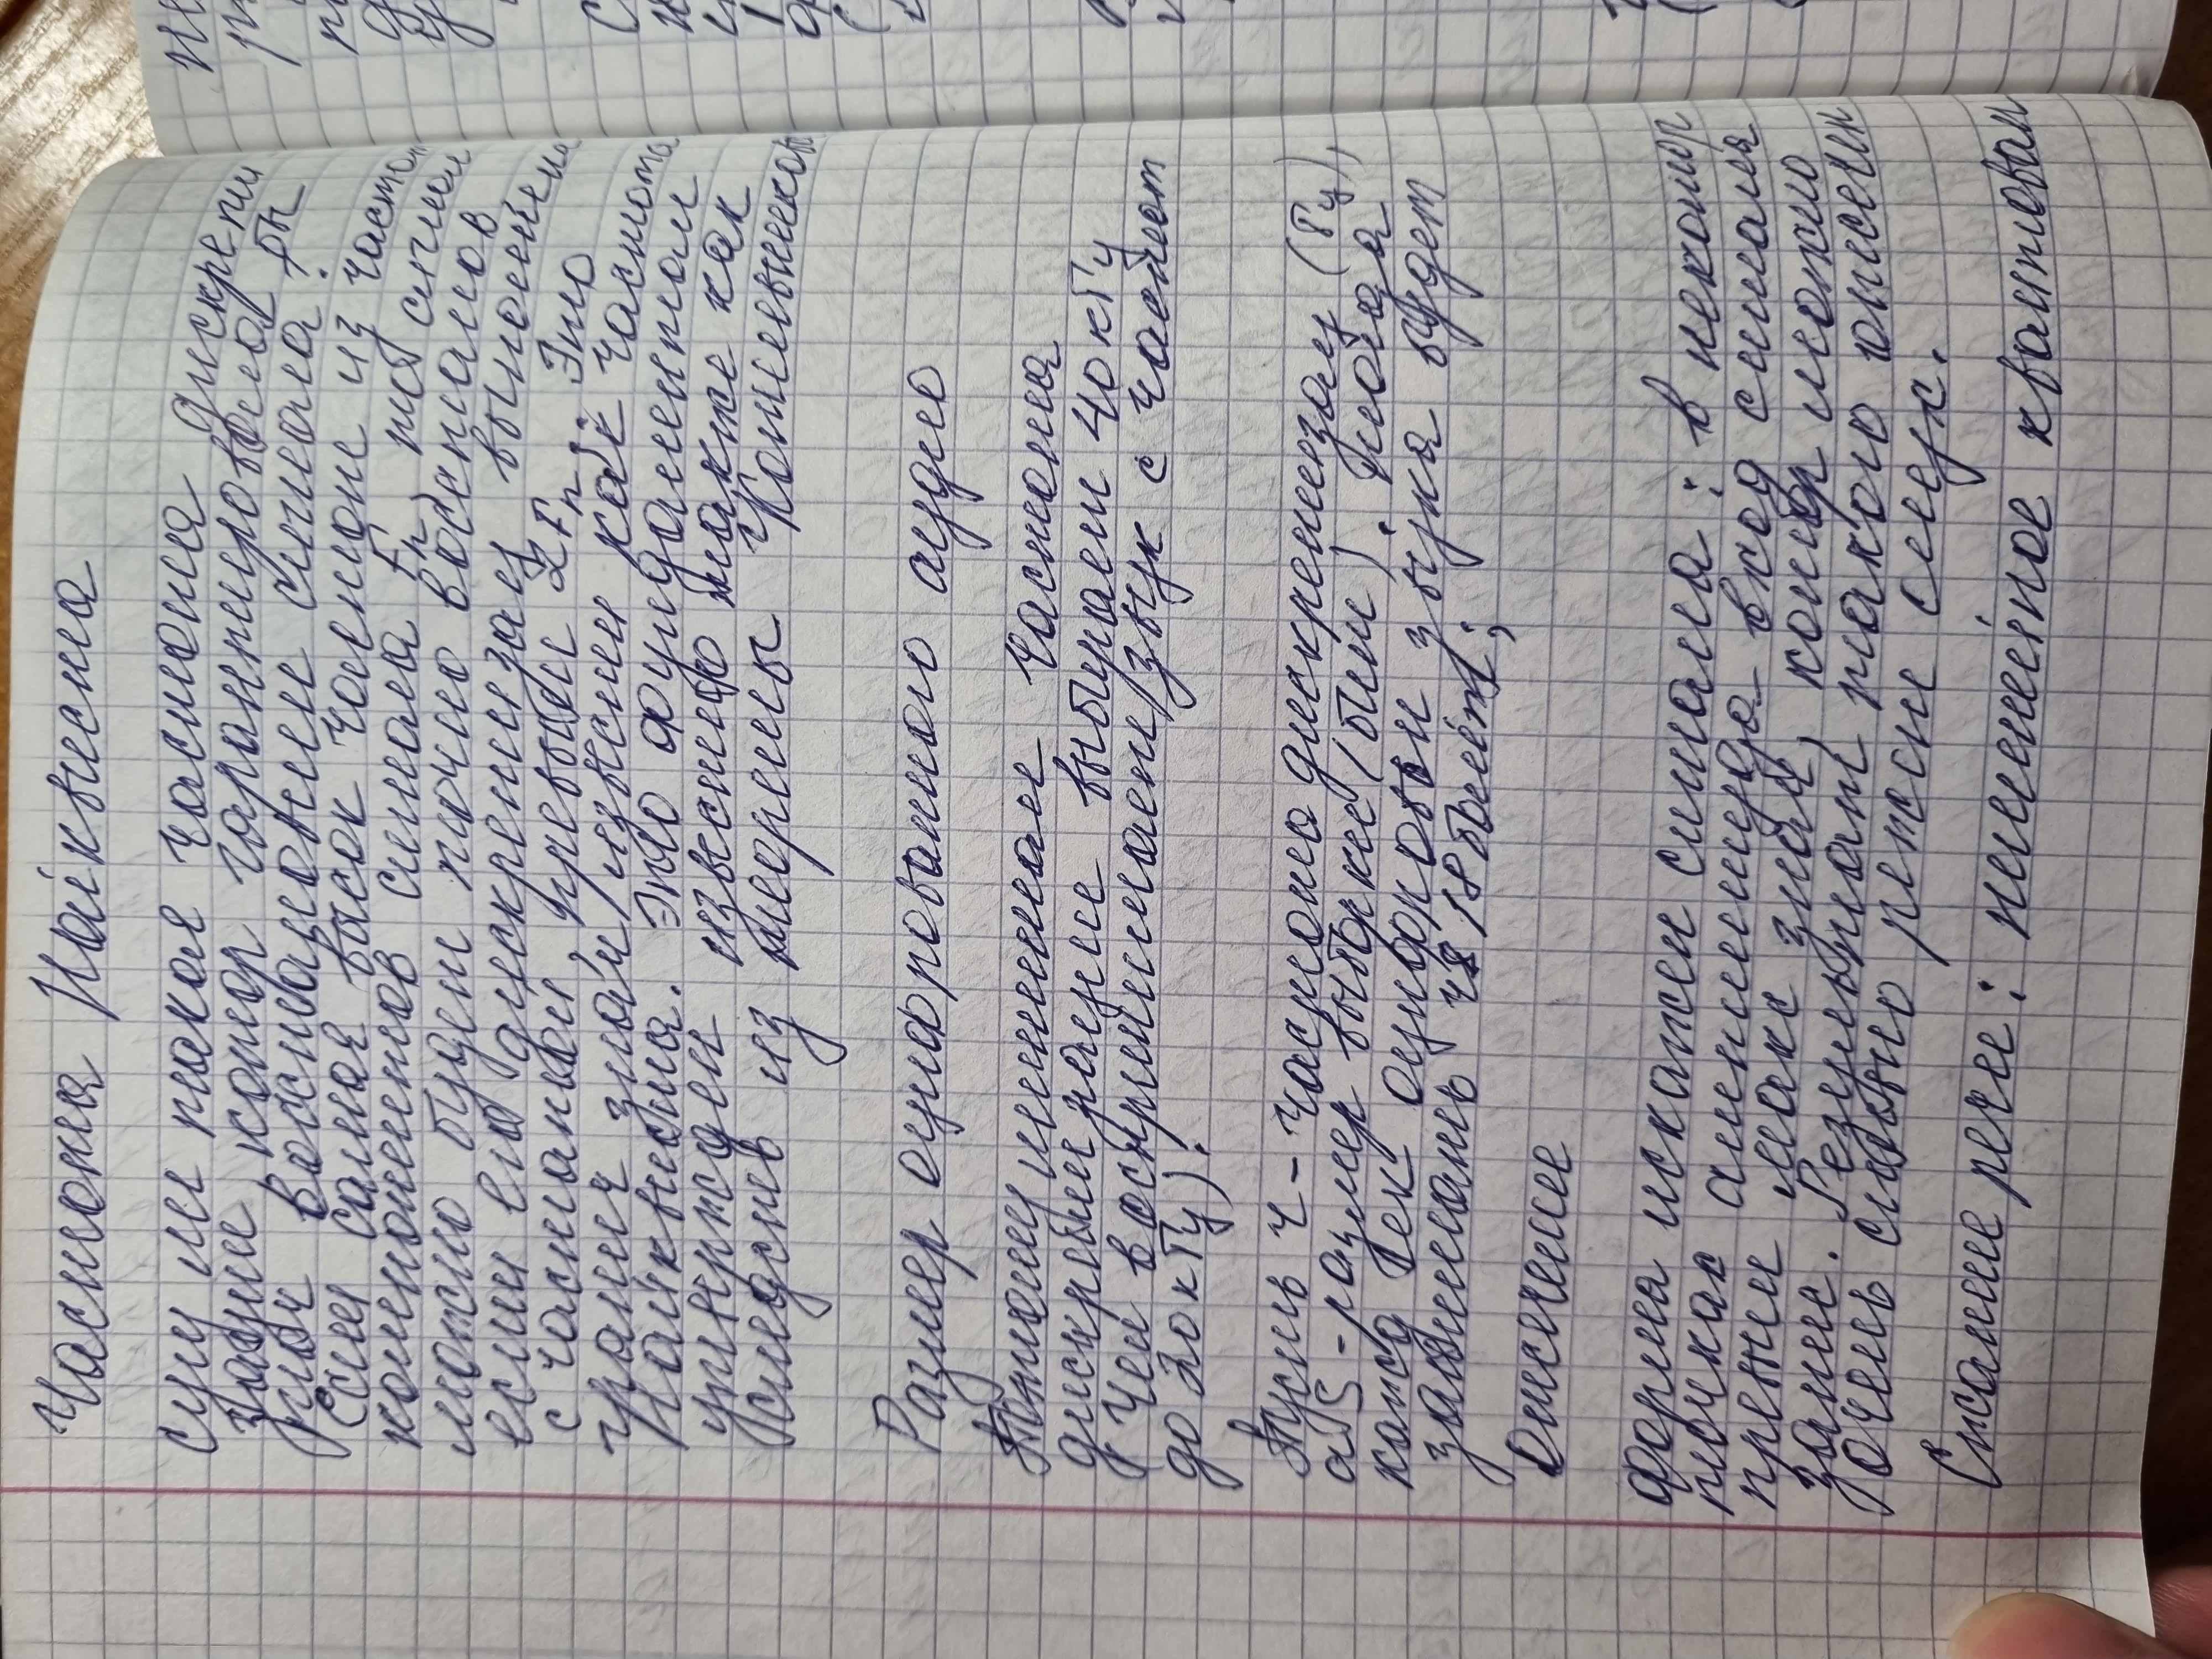 Частота Найквиста
сущ ли такая частота дискрети
зации, котор гарантировала бы
точ восстановлен сигнала?
Если самая высок частоте из частот
компонентов сигнала Fn, то сигнал
можно будет точно восстанов,
если его дискретизац выполнена
с частотой, превыш 2Fn. Это
гранич знач извести как частота
Найквиста. Это фундаментал
утвержден известно также как
следств из теоремы Котельникова
Размер оцифрованного аудио
Поэтому минимал частота
дискретизации выбирает 40 кГц
(Чел воспринимает звук с частот
до 20 кГц).
Пусть Ч - частота дискретизац (Гц),
а S - размер выборки (бит). тогда
кажд сек оцифровки звука будет
занимать /8 байт;
отсечение
форма искажен сигнала: в некотор
точках амплитуда вход сигнала
макс знач, котор можно
запис. Результат такого отсечен
очень сильно режет слух.
Сжатие речи: нелинейное квантован